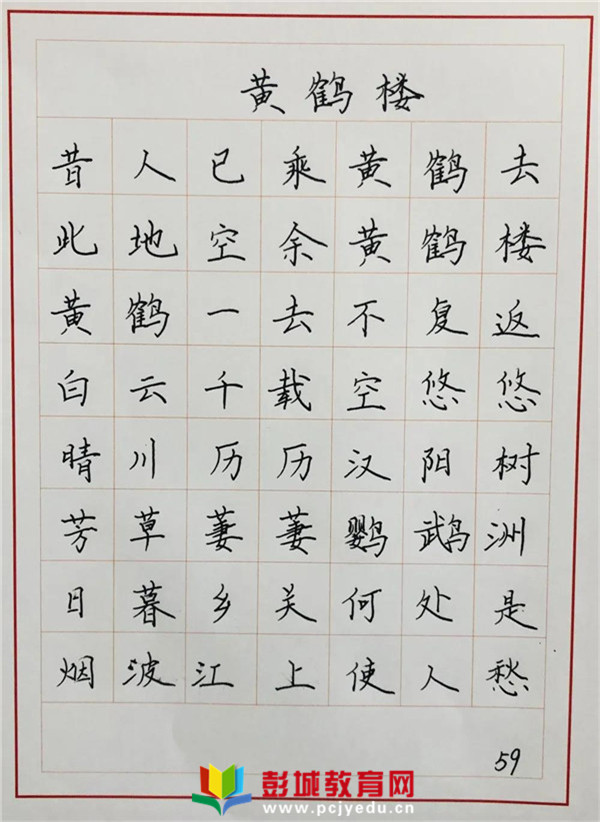 黄鹤楼
昔人已乘黄鹤去
此地空余黄鹤楼
黄鹤一去不复返
白云千载空悠悠
晴川历历汉阳树
芳草萋萋鹦鹉洲
日暮乡关何处是
烟波江上使人愁
59
彭城教育网
www.pcjyedu.cn